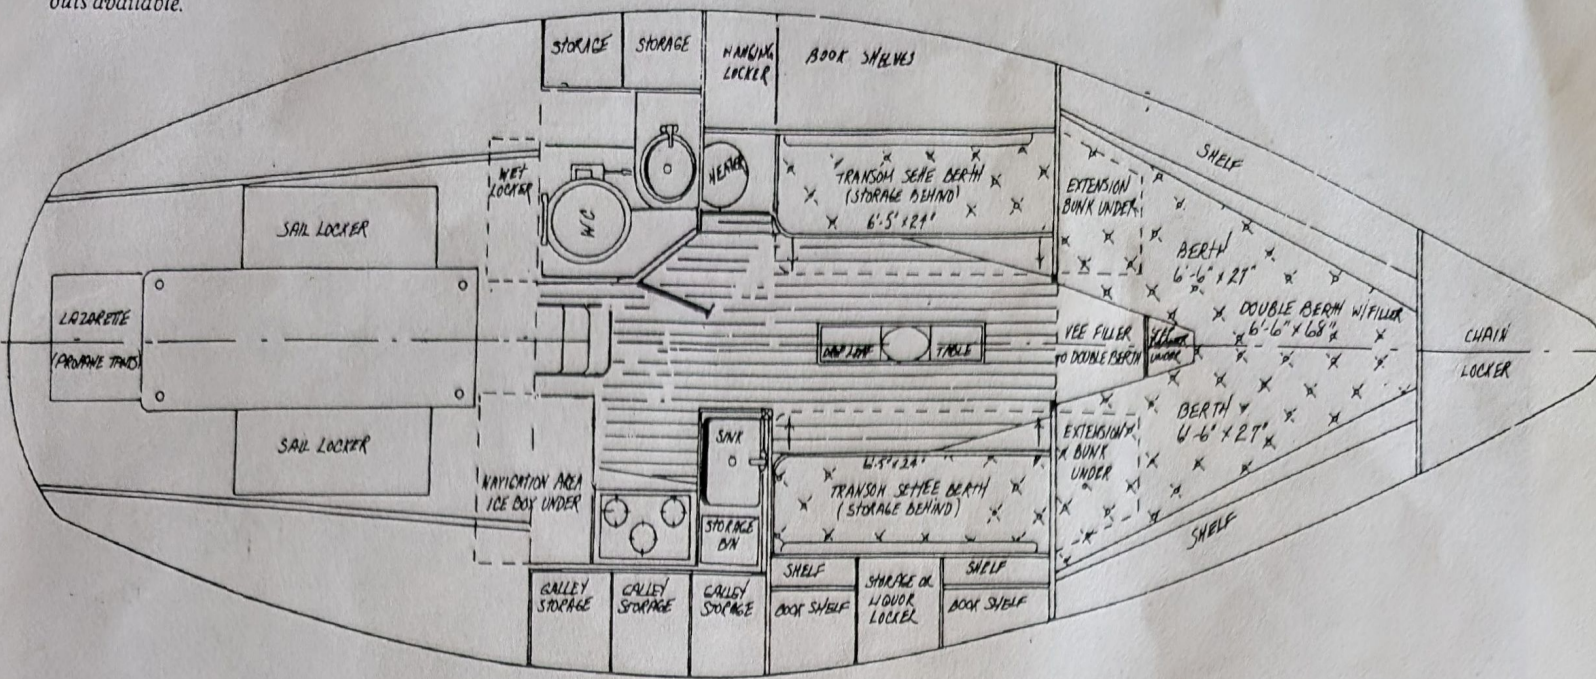 outs available.
STORAGE
STORAGE
HANGING
LOCKER
BOOK SHELVES
SHELF
WET
LOCKER
WC
HEATER
TRANSOM SETTE BERTH
(STORAGE BEHIND)
6'-5" x 24"
EXTENSION
BUNK UNDER
BERTH
6'-6" x 27"
SAIL LOCKER
LAZARETTE
(PROPANE TANKS)
DROP LEAF
TABLE
VEE FILLER
TO DOUBLE BERTH
UNDER
DOUBLE BERTH W/FILLER
6'-6" x 68"
CHAIN
LOCKER
SAIL LOCKER
NAVIGATION AREA
ICE BOX UNDER
SINK
STORAGE
BIN
6'-5" x 24"
TRANSOM SETTEE BERTH
(STORAGE BEHIND)
EXTENSION
BUNK
UNDER
BERTH
6'-6" x 27"
SHELF
GALLEY
STORAGE
GALLEY
STORAGE
GALLEY
STORAGE
SHELF
BOOK SHELF
STORAGE OR
LIQUOR
LOCKER
SHELF
BOOK SHELF